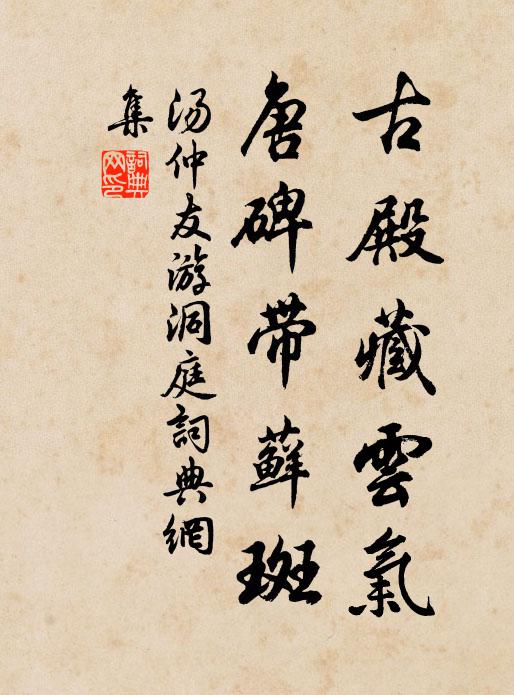 古殿藏雲氣
唐碑带蘚斑
汤仲友游洞庭詞典網
集
詞典网印